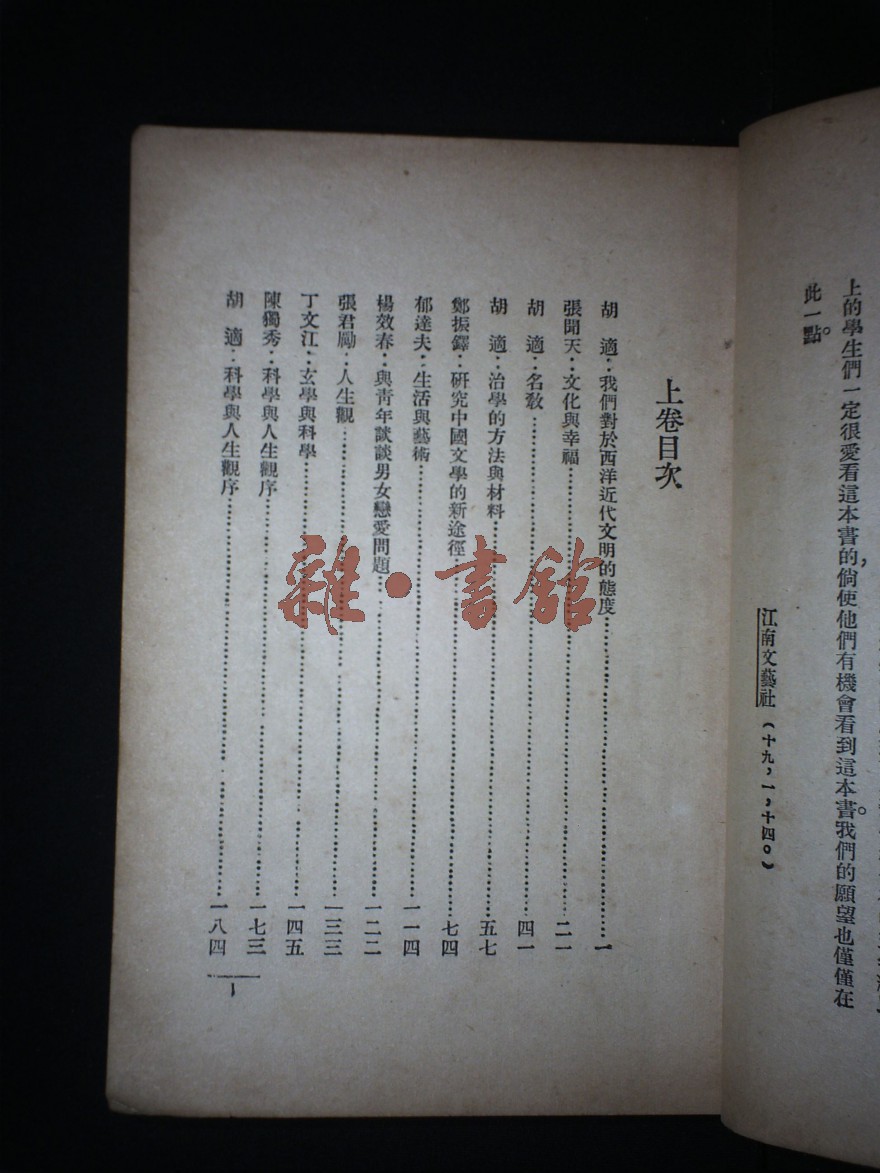 上的學生們一定很愛看這本書的,倘使他們有機會看到這本書。我們的願望也僅僅在
此一點。
江南文藝社(十九,一,十四。)
上卷目次
胡 適:我們對於西洋近代文明的態度……一
張聞天:文化與幸福……二一
胡 適:名教……四一
胡 適:治學的方法與材料……五七
鄭振鐸:研究中國文學的新途徑……七四
郁達夫:生活與藝術……一一四
楊效春:與青年談談男女戀愛問題……一二二
張君勵:人生觀……一三三
丁文江:玄學與科學……一四五
陳獨秀:科學與人生觀序……一七三
胡 適:科學與人生觀序……一八四
1
雜·書館